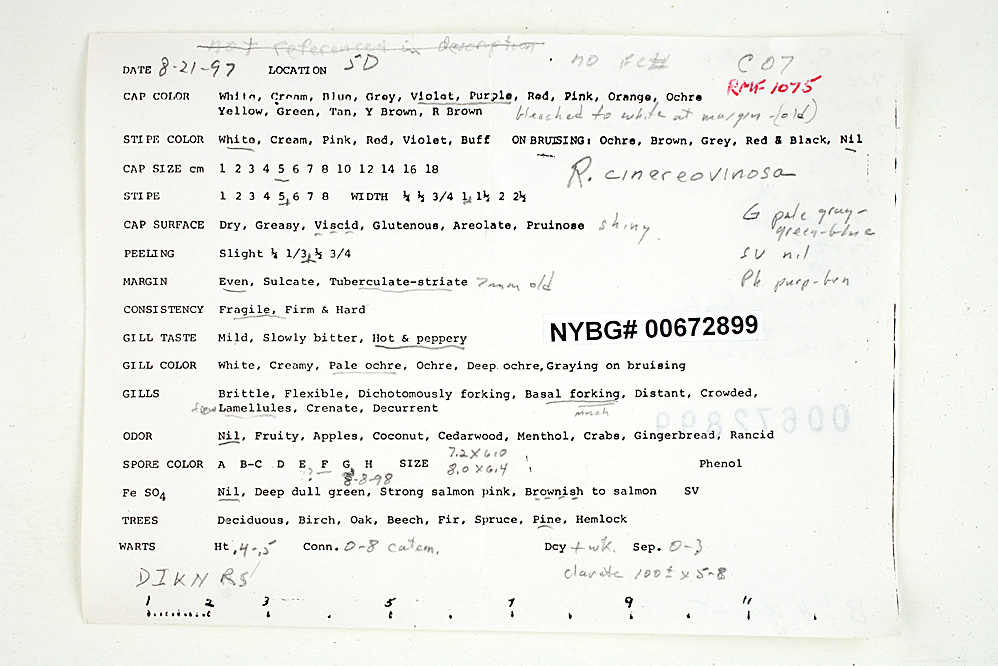 not referenced in description
DATE 8-21-97 LOCATION 5D no C07
RMF 1075
CAP COLOR White, Cream, Blue, Grey, Violet, Purple, Red, Pink, Orange, Ochre
Yellow, Green, Tan, Y Brown, R Brown bleached to white at margin-(old)
STIPE COLOR White, Cream, Pink, Red, Violet, Buff ON BRUISING: Ochre, Brown, Grey, Red & Black, Nil
CAP SIZE cm 1 2 3 4 5 6 7 8 10 12 14 16 18 R. cinereovinosa
STIPE 1 2 3 4 5 6 7 8 WIDTH ¼ ½ 3/4 1 1½ 2 2½
G pale gray-
green-blue
CAP SURFACE Dry, Greasy, Viscid, Glutenous, Areolate, Pruinose shiny
PEELING Slight ¼ 1/3 ½ 3/4 SV nil
MARGIN Even, Sulcate, Tuberculate-striate 7mm old Ph purp-brn
CONSISTENCY Fragile, Firm & Hard
NYBG# 00672899
GILL TASTE Mild, Slowly bitter, Hot & peppery
GILL COLOR White, Creamy, Pale ochre, Ochre, Deep ochre, Graying on bruising
GILLS Brittle, Flexible, Dichotomously forking, Basal forking, Distant, Crowded,
few Lamellules, Crenate, Decurrent much
00672899
ODOR Nil, Fruity, Apples, Coconut, Cedarwood, Menthol, Crabs, Gingerbread, Rancid
7.2 x 6.0
SPORE COLOR A B-C D E F G H SIZE 8.0 x 6.4 Phenol
? 8-8-98
Fe SO4 Nil, Deep dull green, Strong salmon pink, Brownish to salmon SV
TREES Deciduous, Birch, Oak, Beech, Fir, Spruce, Pine, Hemlock
WARTS Ht .4-.5 Conn. 0-8 catem. Dcy + wk. Sep. 0-3
DIKN RS clavate 100± x 5-8
1 2 3 5 7 9 11